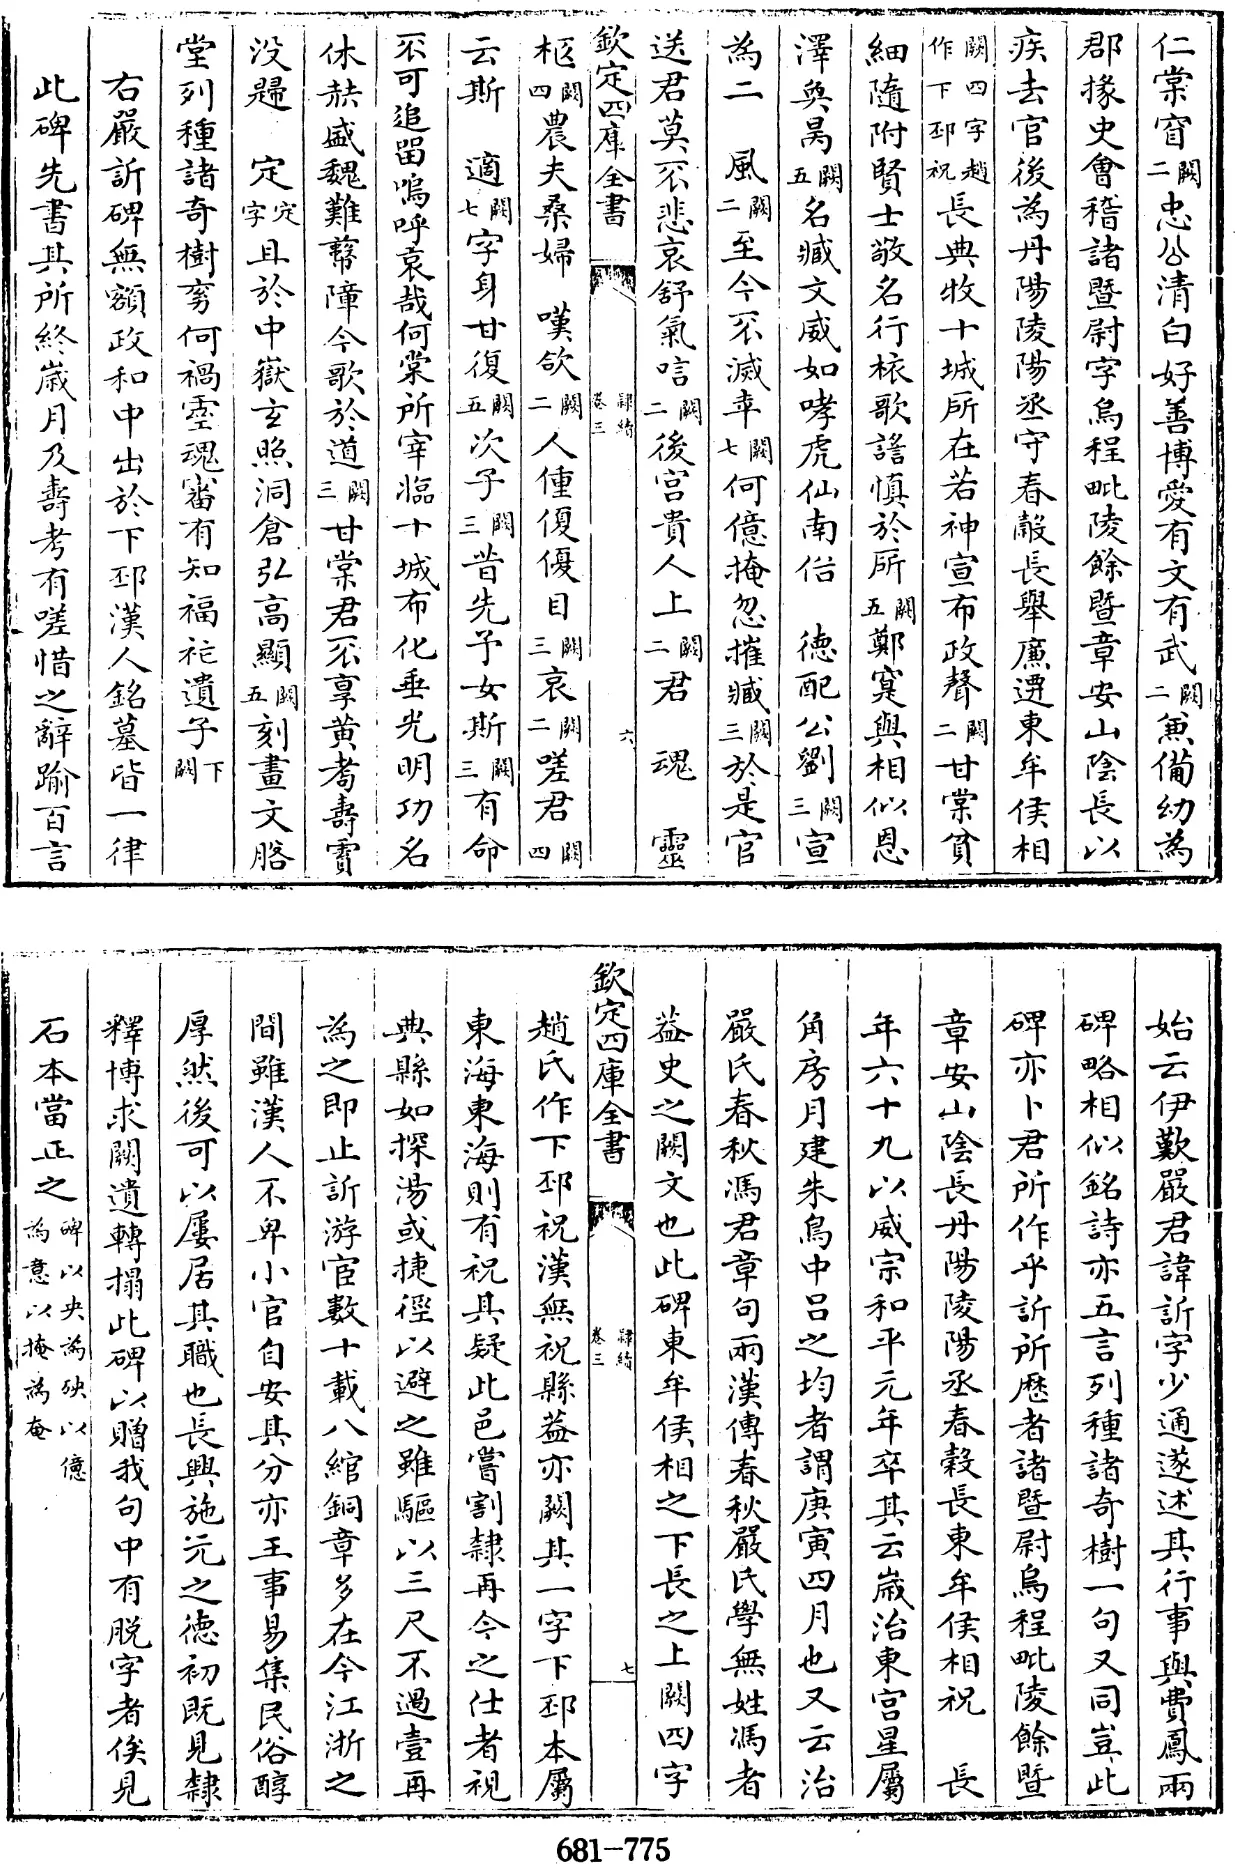 仁棠窅闕二忠公清白好善博愛有文有武闕二兼備幼為
郡掾史會稽諸暨尉字烏程毗陵餘暨章安山陰長以
疾去官後為丹陽陵陽丞守春穀長舉廉遷東牟侯相
闕四字趙作下邳祝長典牧十城所在若神宣布政聲闕二甘棠貧
細隨附賢士敬名行桹歌謠慎於所闕五鄭㝠與相似恩
澤奐昺闕五名臧文威如哮虎仙南俗 德配公劉闕三宣
為二 風闕二至今不滅幸闕七何億掩忽摧臧闕三於是官
送君莫不悲哀舒氣唁闕二後宫貴人上闕二君 魂 靈
欽定四庫全書 隸續卷三 六
柩闕四農夫桑婦 嘆欲闕二人僮優優目闕三哀闕二嗟君闕四
云斯 適闕七字身甘復闕五次子闕三昔先予女斯闕三有命
不可追留嗚呼哀哉何棠所宰臨十城布化垂光明功名
休赫盛魏難幣障今歌於道闕三甘棠君不享黄耉壽賓
没歸 定定字且於中嶽玄照洞倉弘高顯闕五刻畫文胳
堂列種諸奇樹㝊何禍靈魂審有知福祉遺子下闕
右嚴訢碑無額政和中出於下邳漢人銘墓皆一律
此碑先書其所終歲月及壽考有嗟惜之辭踰百言
始云伊歎嚴君諱訢字少通遂述其行事與費鳳兩
碑略相似銘詩亦五言列種諸奇樹一句又同豈此
碑亦卜君所作乎訢所歴者諸暨尉烏程毗陵餘暨
章安山陰長丹陽陵陽丞春穀長東牟侯相祝 長
年六十九以威宗和平元年卒其云歲治東宫星屬
角房月建朱鳥中吕之均者謂庚寅四月也又云治
嚴氏春秋馮君章句兩漢傳春秋嚴氏學無姓馮者
葢史之闕文也此碑東牟侯相之下長之上闕四字
欽定四庫全書 隸續卷三 七
趙氏作下邳祝漢無祝縣葢亦闕其一字下邳本屬
東海東海則有祝其疑此邑嘗割隸再今之仕者視
典縣如探湯或捷徑以避之雖驅以三尺不過壹再
為之即止訢游宦數十載八綰銅章多在今江浙之
間雖漢人不卑小官自安其分亦王事易集民俗醇
厚然後可以屢居其職也長興施元之德初既見隸
釋博求闕遺轉搨此碑以贈我句中有脱字者俟見
石本當正之碑以央為殃以億為意以掩為奄
681-775